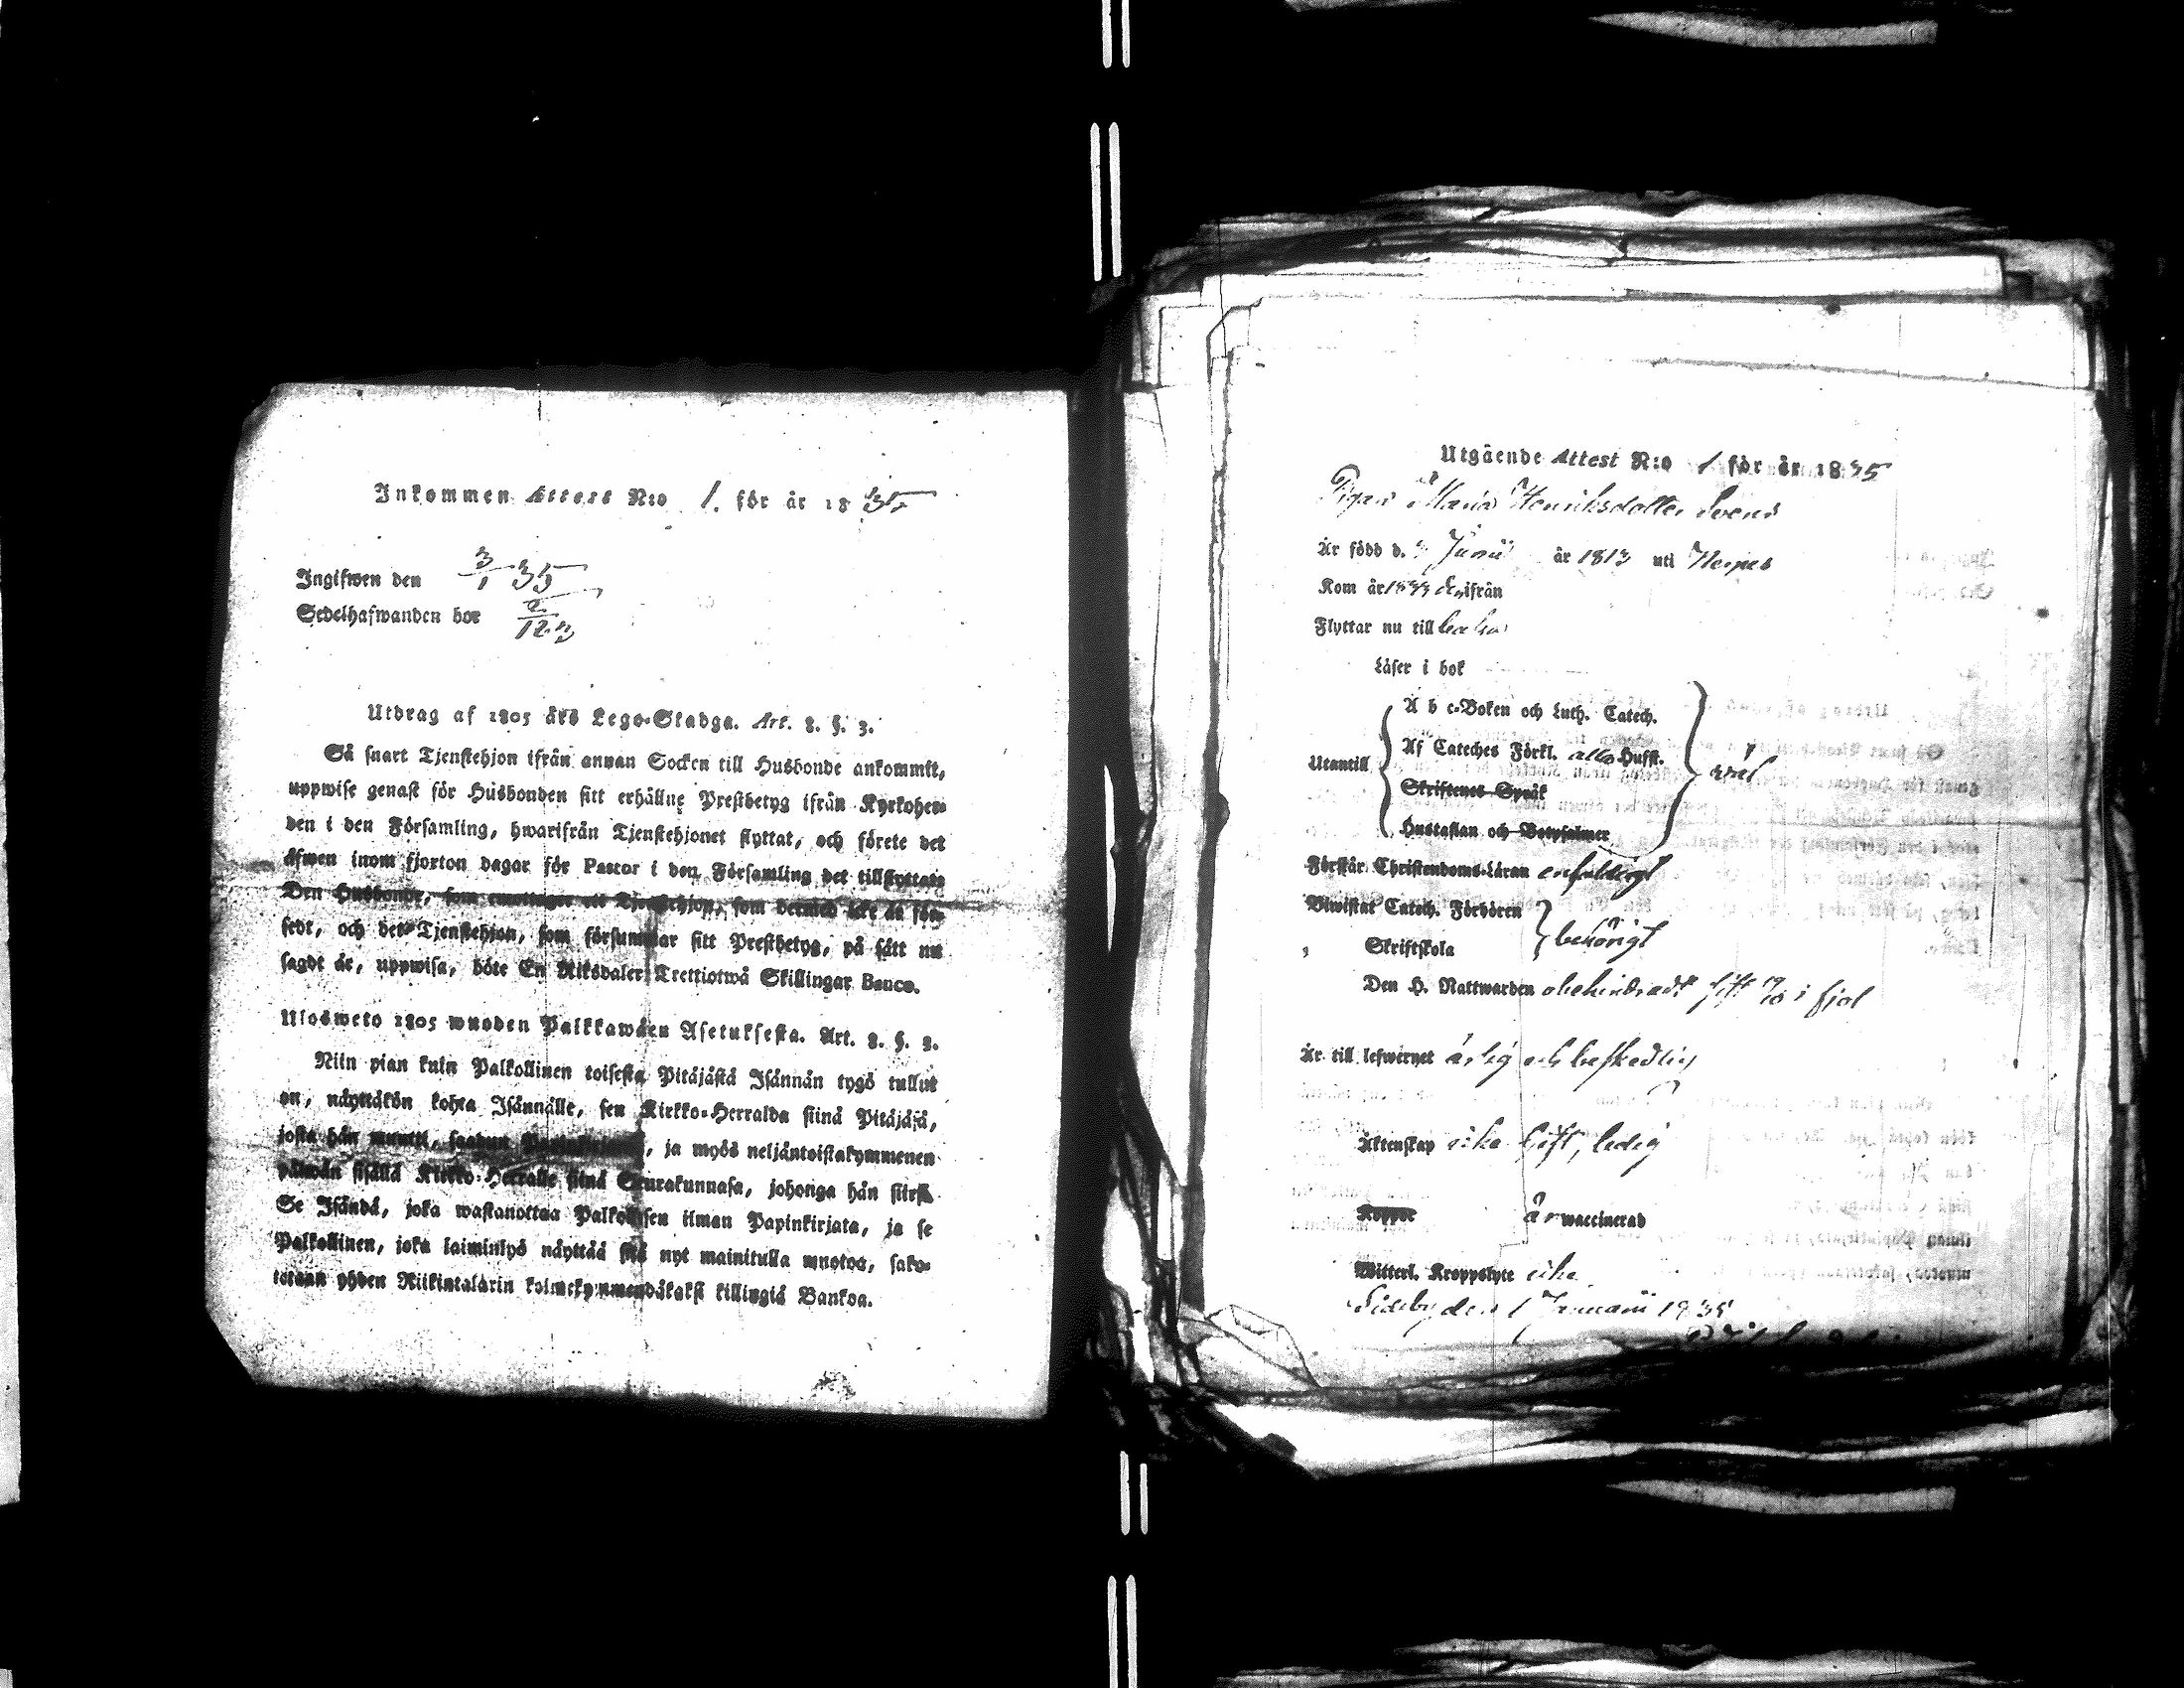 Inkommen Attest N:o 1. för år 1835
Ingifwen den 3/1 35
Sedelhafwanden bor
Utdrag af 1805 års Lego-Stadga. Art. 8. §. 3.
Så snart Tjenstehjon ifrån annan Socken till Husbonde ankommit,
uppwise genast för Husbonden sitt erhållne Prestbetyg ifrån Kyrkoher-
den i den Församling, hwarifrån Tjenstehjonet flyttat, och förete det
äfwen inom fjorton dagar för Pastor i den Församling det tillflyttat.
Den Husbonde, som emottager ett Tjenstehjon, som dermed icke är för-
sedt, och det Tjenstehjon, som försummar sitt Prestbetyg, på sätt nu
sagdt är, uppwisa, böte En Riksdaler Trettiotwå Skillingar Banco.
Ulosweto 1805 wuoden Palkkawäen Asetuksesta. Art. 8. §. 3.
Niin pian kuin Palkollinen toisesta Pitäjästä Isännän tygö tullut
on, näyttäkön kohta Isännälle, sen Kirkko-Herralda siinä Pitäjäsä,
josta hän muutti, saadun, ja myös neljäntoistakymmenen
päiwän sisällä Kirkko-Herralle siinä Seurakunnasa, johonga hän siirsi.
Se Isändä, joka wastanottaa Palkollisen ilman Papinkirjata, ja se
Palkollinen, joka laiminlyö näyttää sitä nyt mainitulla muotoa, sako-
tetaan yhden Riikintalarin kolmekymmendäkaksi killingiä Bankoa.
Utgående Attest N:o 1 för år 1835
Pigan Maria Henriksdotter Svens
Är född d. Junii år 1813 uti
Kom år 1833 ifrån
Flyttar nu till
Läser i bok
A b c-Boken och Luth. Catech.
Utantill Af Cateches Förkl. alla Husst. wäl
Skriftenes Språk
Hustaflan och Botpsalmer
Förstår Christendoms-Läran enfaldigt
Biwistat Catech. Förhören
Skriftskola behörigt
Den H. Nattwarden obehindradt sist i fjol
Är till lefwernet ärlig och beskedlig
Äktenskap icke gift, ledig
Koppor är waccinerad
Witterl. Kroppslyte icke
Sideby den 1 Januarii 1835